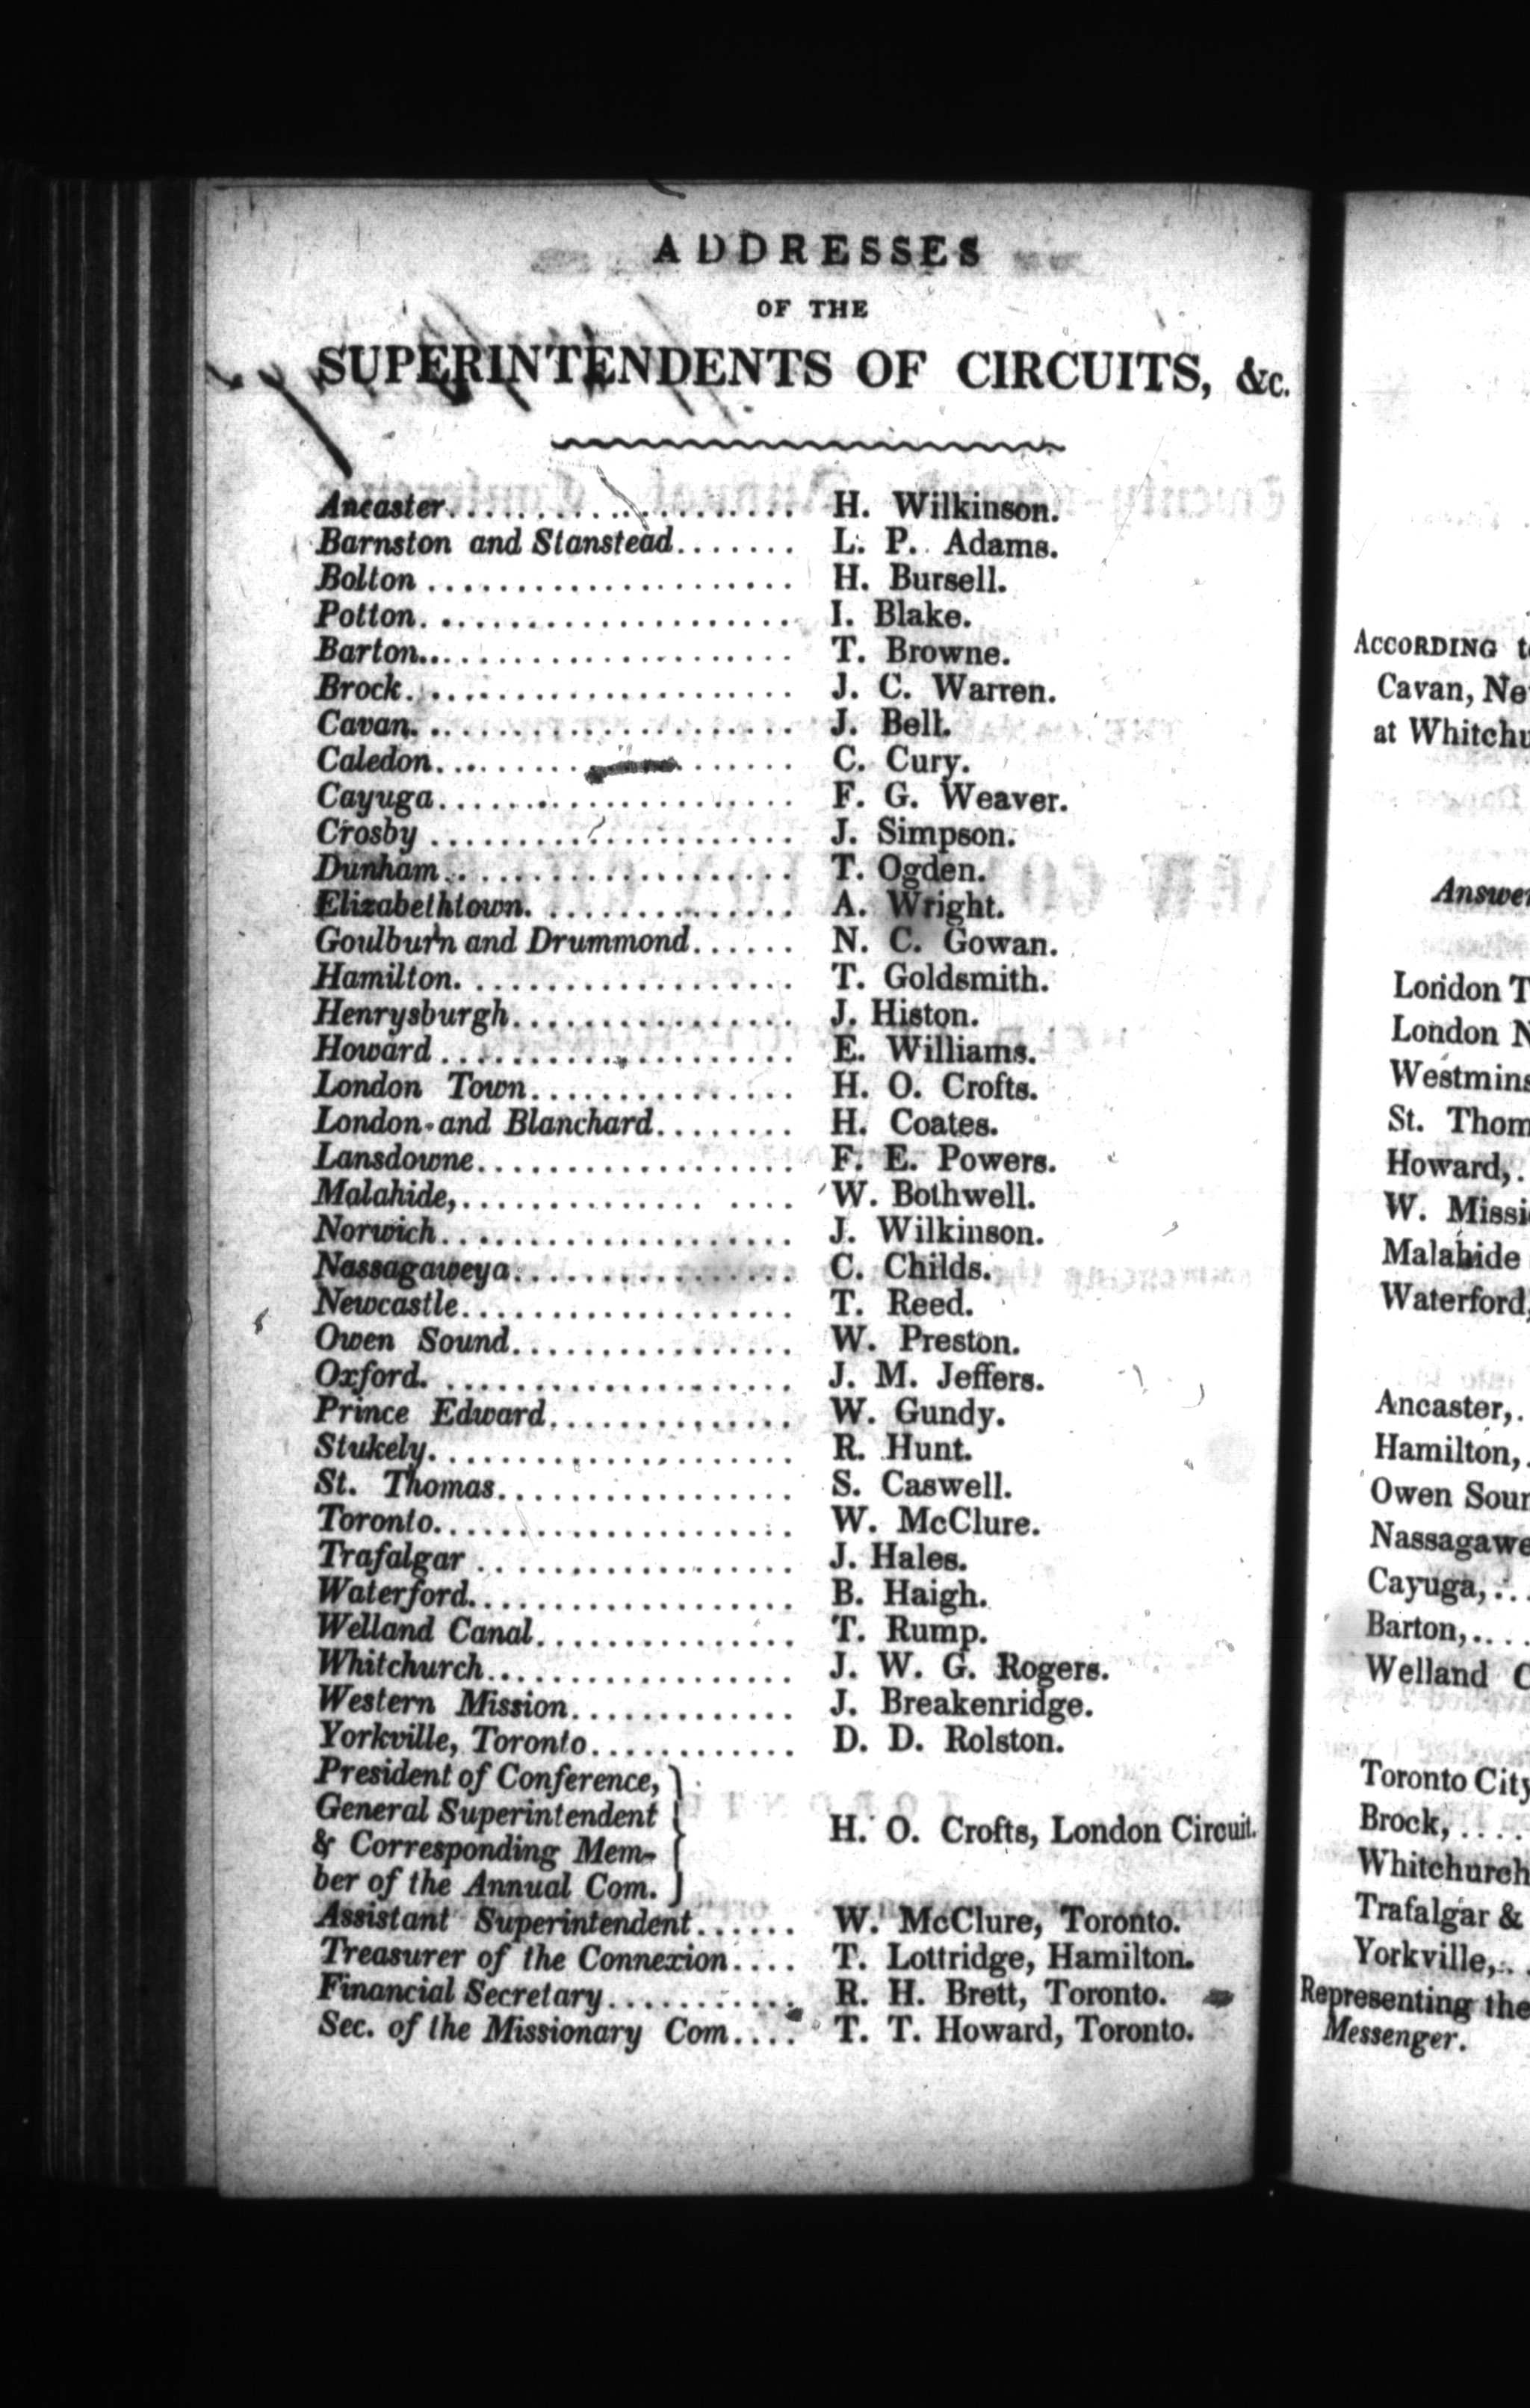 ADDRESSES
OF THE
SUPERINTENDENTS OF CIRCUITS, &c.
Ancaster.................... H. Wilkinson.
Barnston and Stanstead....... L. P. Adams.
Bolton ..................... H. Bursell.
Potton...................... I. Blake.
Barton...................... T. Browne.
Brock....................... J. C. Warren.
Cavan....................... J. Bell.
Caledon..................... C. Cury.
Cayuga...................... F. G. Weaver.
Crosby ..................... J. Simpson.
Dunham...................... T. Ogden.
Elizabethtown............... A. Wright.
Goulburn and Drummond...... N. C. Gowan.
Hamilton.................... T. Goldsmith.
Henrysburgh................ J. Histon.
Howard .................... E. Williams.
London Town............... H. O. Crofts.
London and Blanchard........ H. Coates.
Lansdowne.................. F. E. Powers.
Malahide,.............. .... W. Bothwell.
Norwich.................... J. Wilkinson.
Nassagaweya................ C. Childs.
Newcastle................... T. Reed.
Owen Sound................ W. Preston.
Oxford. .................... J. M. Jeffers.
Prince Edward.............. W. Gundy.
Stukely..................... R. Hunt.
St. Thomas................. S. Caswell.
Toronto..................... W. McClure.
Trafalgar .................. J. Hales.
Waterford................... B. Haigh.
Welland Canal............... T. Rump.
Whitchurch.................. J. W. G. Rogers.
Western Mission............. J. Breakenridge.
Yorkville, Toronto............ D. D. Rolston.
President of Conference,
General Superintendent
& Corresponding Mem-
ber of the Annual Com. } H. O. Crofts, London Circuit.
Assistant Superintendent...... W. McClure, Toronto.
Treasurer of the Connexion.... T. Lottridge, Hamilton.
Financial Secretary........... R. H. Brett, Toronto.
Sec. of the Missionary Com.... T. T. Howard, Toronto.
ACCORDING
Cavan,
at
Answer
London
London
Westmins
St. Thom
Howard,.
W. Missi
Malahide
Waterford,
Ancaster,.
Hamilton,.
Owen Soun
Nassagawe
Cayuga,...
Barton,....
Welland C
Toronto City
Brock,....
Whitchurch
Trafalgar &
Yorkville,..
Representing the
Messenger.